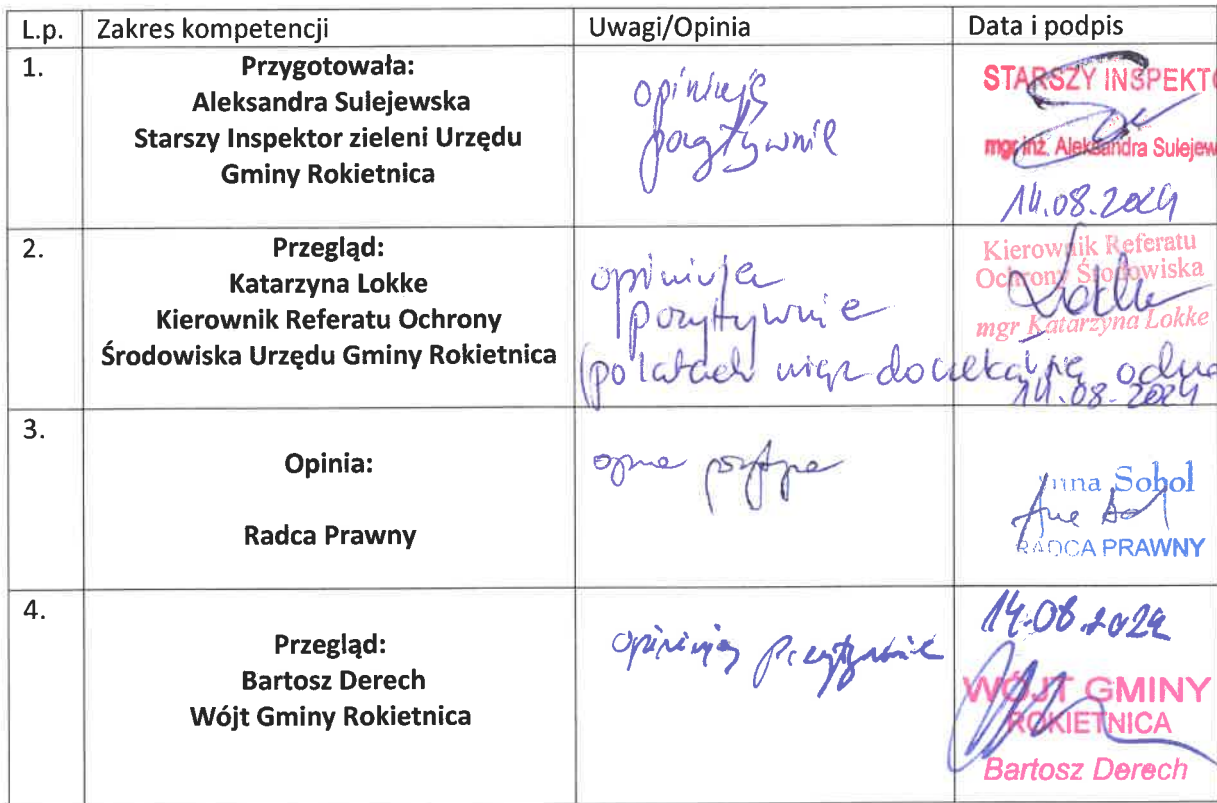 L.p. Zakres kompetencji Uwagi/Opinia Data i podpis
1. Przygotowała:
Aleksandra Sulejewska
Starszy Inspektor zieleni Urzędu
Gminy Rokietnica
opiniuję
pozytywnie
STARSZY INSPEKTO
mgr inż. Aleksandra Sulejew
14.08.2024
2. Przegląd:
Katarzyna Lokke
Kierownik Referatu Ochrony
Środowiska Urzędu Gminy Rokietnica
opiniuję
pozytywnie
(po latach więz doczekał się
Kierownik Referatu
Ochrony Środowiska
mgr Katarzyna Lokke
14.08.2024
3.
Opinia:
Radca Prawny
Sobol
RADCA PRAWNY
4.
Przegląd:
Bartosz Derech
Wójt Gminy Rokietnica
opiniuję pozytywnie
14.08.2024
WÓJT GMINY
ROKIETNICA
Bartosz Derech